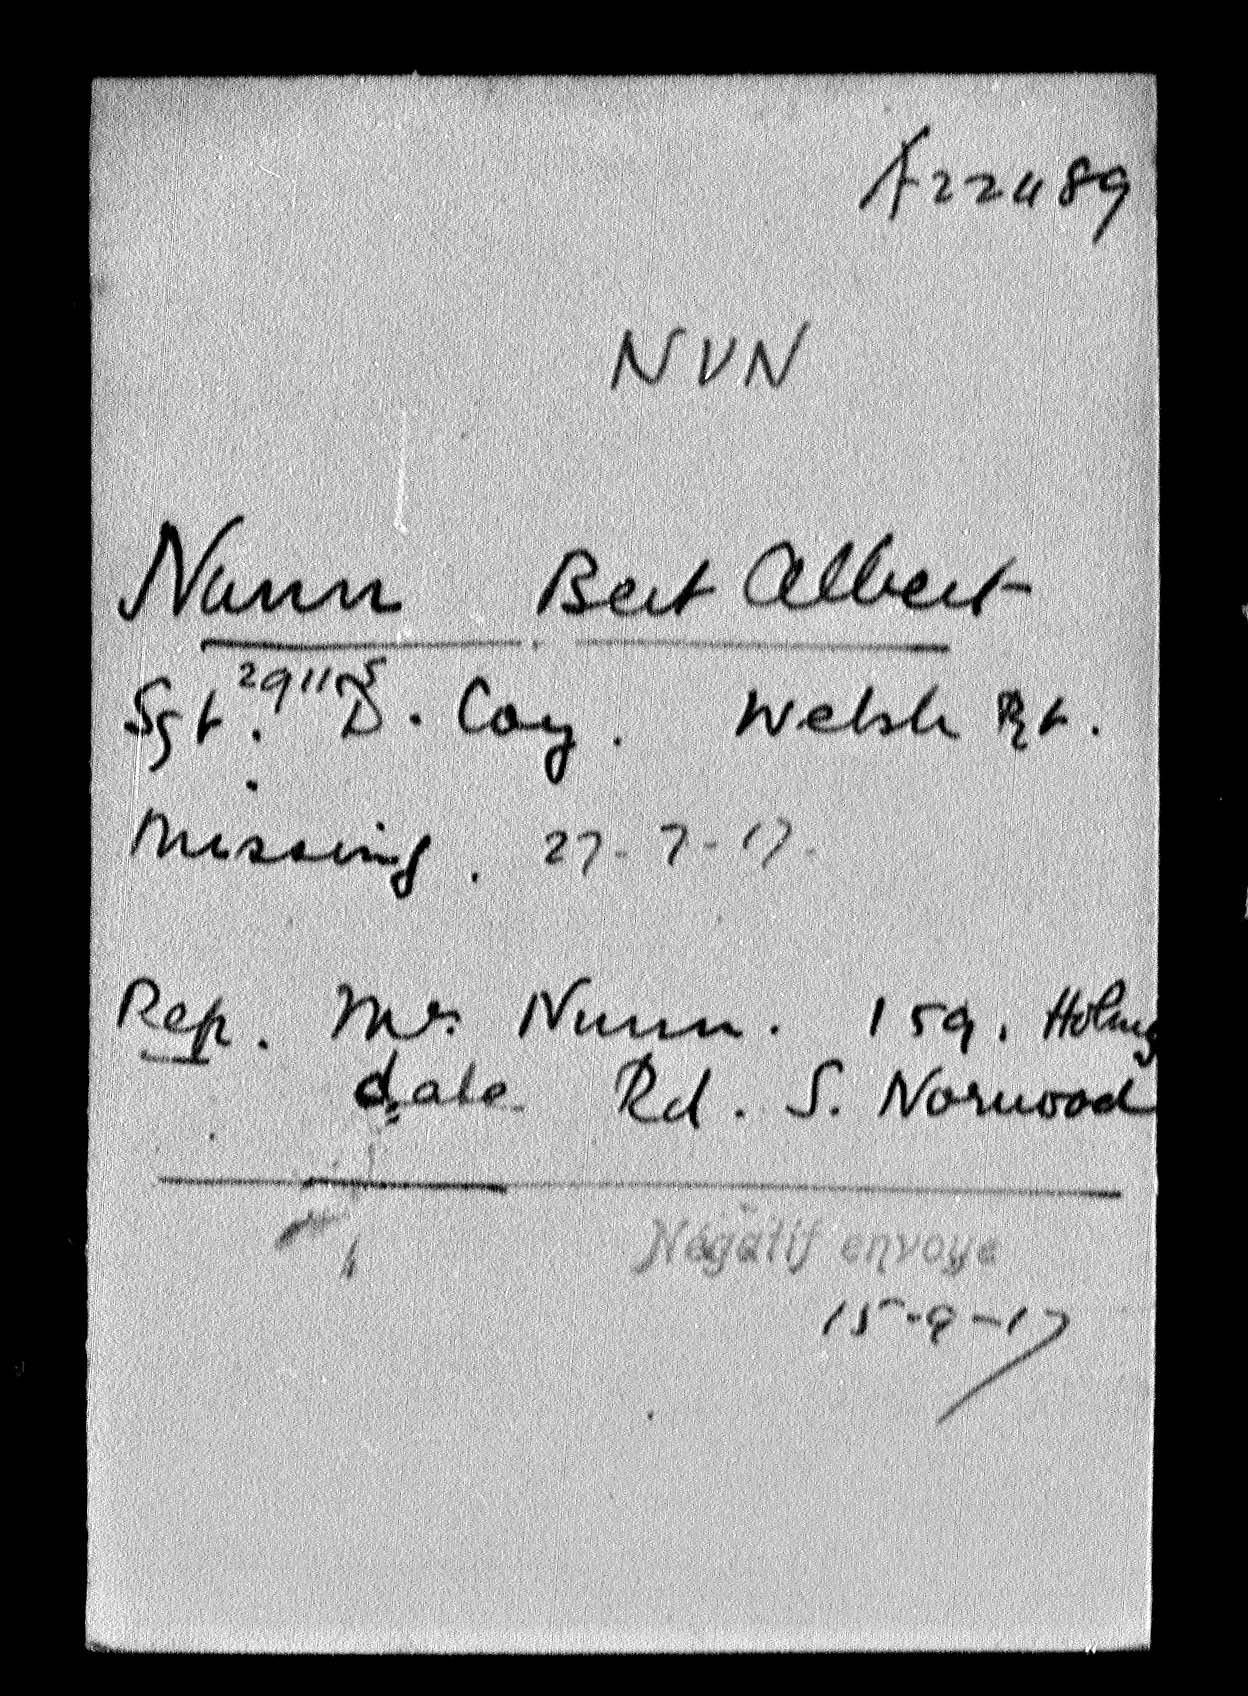 A 22489
NUN
Nunn Bert Albert
Sgt. 29115 D. Coy. Welsh Rgt.
Missing. 27-7-17.
Rep. Mr. Nunn. 159. Holmes
dale Rd. S. Norwood
Négatif envoyé
15-9-17